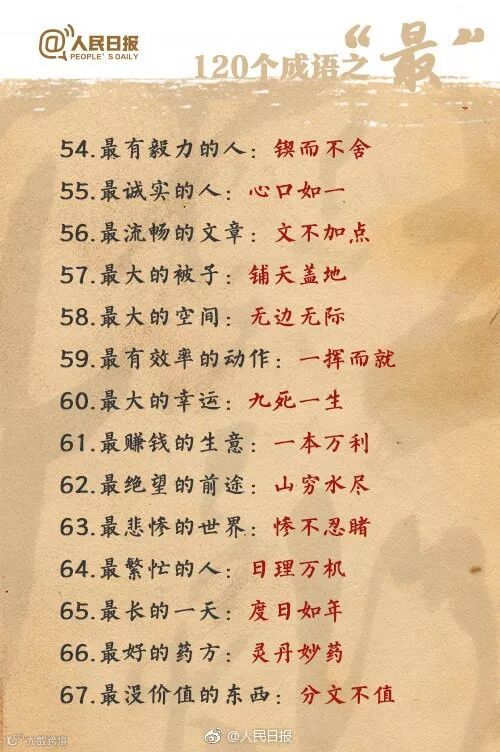 @人民日报
PEOPLE'S DAILY
120个成语之“最”
54.最有毅力的人：锲而不舍
55.最诚实的人：心口如一
56.最流畅的文章：文不加点
57.最大的被子：铺天盖地
58.最大的空间：无边无际
59.最有效率的动作：一挥而就
60.最大的幸运：九死一生
61.最赚钱的生意：一本万利
62.最绝望的前途：山穷水尽
63.最悲惨的世界：惨不忍睹
64.最繁忙的人：日理万机
65.最长的一天：度日如年
66.最好的药方：灵丹妙药
67.最没价值的东西：分文不值
大数跨境
@人民日报